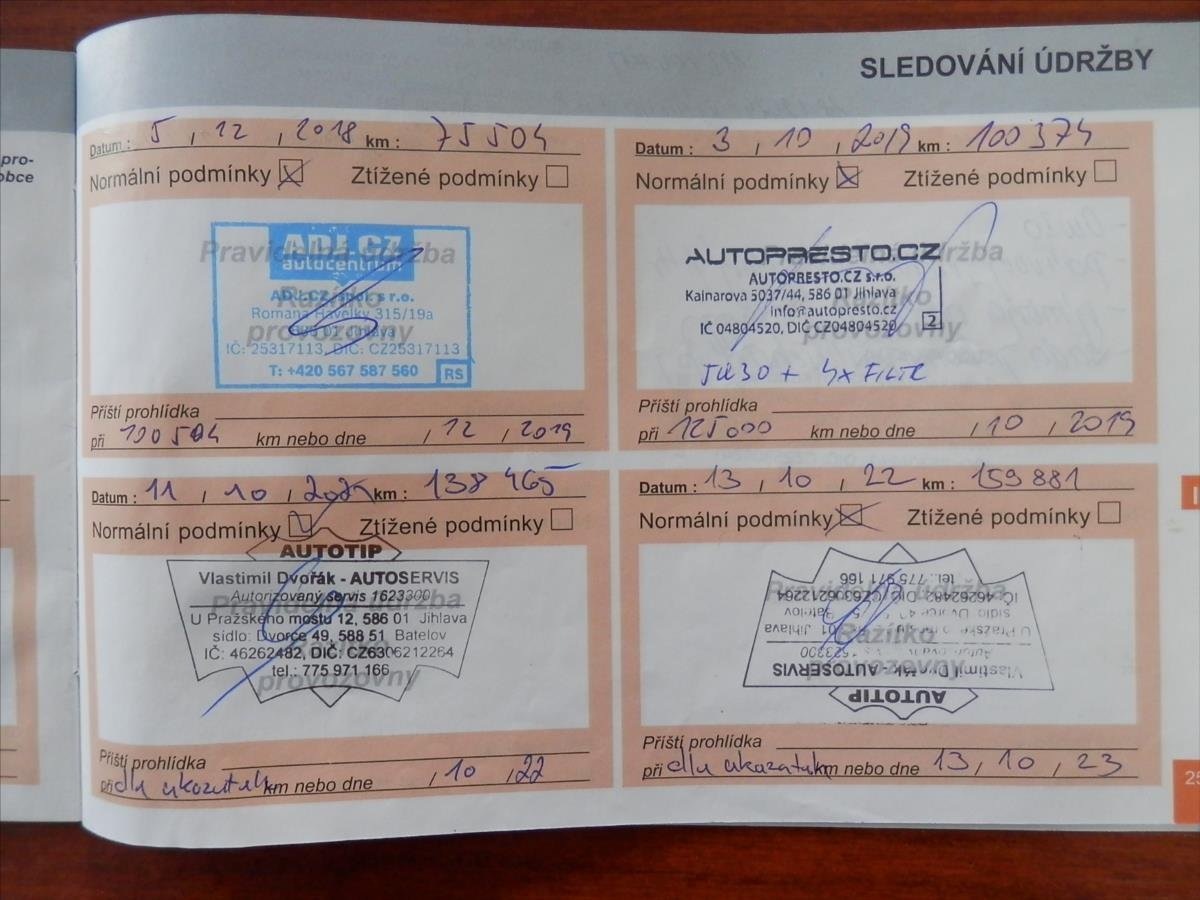 SLEDOVÁNÍ ÚDRŽBY
pro-
obce
Datum : 5 , 12 , 2018 km : 75504
Normální podmínky Ztížené podmínky
Pravidelná údržba
Razítko
provozovny
ADJ.CZ
autocentrum
ADJ.CZ, spol. s r.o.
Romana Havelky 315/19a
586 01 Jihlava
IČ: 25317113, DIČ: CZ25317113
T: +420 567 587 560 RS
Příští prohlídka
při 100504 km nebo dne , 12 , 2019
Datum : 3 , 10 , 2019 km : 100374
Normální podmínky Ztížené podmínky
Pravidelná údržba
Razítko
provozovny
AUTOPRESTO.CZ
AUTOPRESTO.CZ s.r.o.
Kainarova 5037/44, 586 01 Jihlava
info@autopresto.cz
IČ 04804520, DIČ CZ04804520 2
5W30 + 4x FILTR
Příští prohlídka
při 125000 km nebo dne , 10 , 2019
Datum : 11 , 10 , km : 138 465
Normální podmínky Ztížené podmínky
Pravidelná údržba
Razítko
provozovny
AUTOTIP
Vlastimil Dvořák - AUTOSERVIS
Autorizovaný servis 1623300
U Pražského mostu 12, 586 01 Jihlava
sídlo: Dvorce 49, 588 51 Batelov
IČ: 46262482, DIČ: CZ6306212264
tel.: 775 971 166
Příští prohlídka
při dle ukazatele km nebo dne , 10 , 22
Datum : 13 , 10 , 22 km : 159881
Normální podmínky Ztížené podmínky
Pravidelná údržba
Razítko
provozovny
AUTOTIP
Vlastimil Dvořák - AUTOSERVIS
U Pražského 01 Jihlava
sídlo: Dvorce 49, Batelov
IČ: 46262482, DIČ: CZ6306212264
tel.: 775 971 166
Příští prohlídka
při dle ukazatele km nebo dne 13 , 10 , 23
25